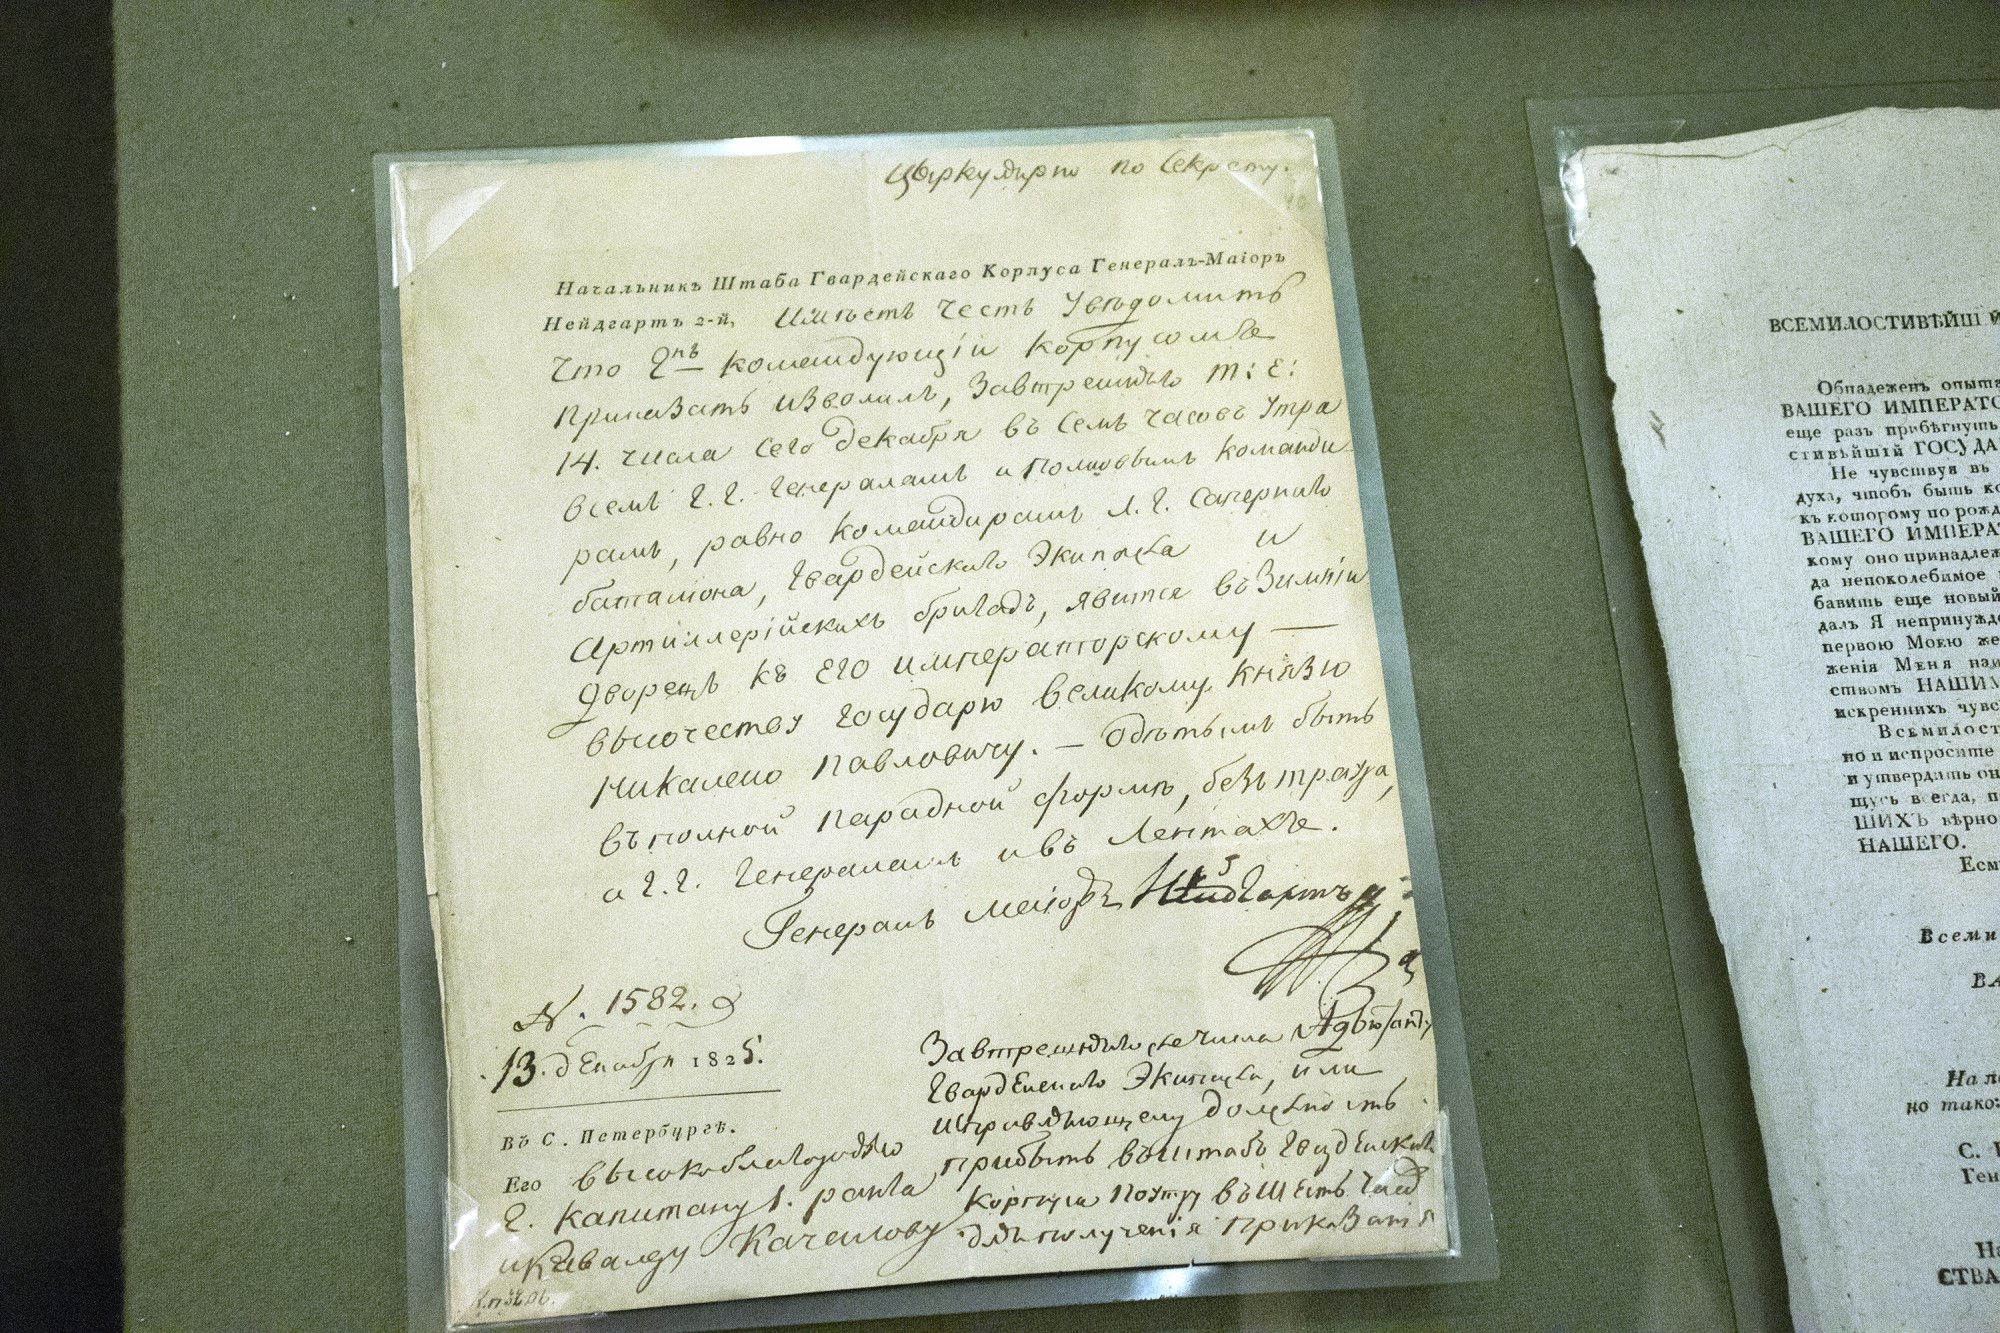 Цыркулярно по Секрету.
Начальникъ Штаба Гвардейскаго Корпуса Генералъ-Маіоръ
Нейдгартъ 2-й, Имѣетъ честь Увѣдомить
Что Г<sup>нъ</sup> командующій корпусомъ
приказать изволилъ, Завтрешнѣго т: е:
14. числа сего декабря въ Семъ часовъ Утра
всемъ Г. Г. Генераламъ и полковымъ команди-
рамъ, равно командирамъ Л. Г. Сапернаго
баталіона, Гвардейскаго Экипажа и
Артиллерійскихъ бригадъ, явится въ Зимній
дворецъ къ Его императорскому —
высочеству Государю великому Князю
Николаю Павловичу. — Одѣтымъ быть
въ полной парадной формѣ, безъ траура,
а Г. Г. Генераламъ и въ Лентахъ.
Генералъ маіоръ Нейдгартъ
N. 1582.
13. декабря 1825.
Въ С. Петербургѣ.
Его высокоблагородію
Г. капитану 1. ранга
и Кавалеру Качалову
Завтрешняго числа Адъютанту
Гвардейскаго Экипажа, или
Исправляющему должность
прибыть въ штабъ Гвардейскаго
Корпуса Поутру въ шесть часовъ
для получения приказанія
ВСЕМИЛОСТИВѢЙШІЙ
Обнадеженъ опыта
ВАШЕГО ИМПЕРАТО
еще разъ прибѣгнушь
стивѣйшій ГОСУДА
Не чувствуя въ
духа, чтобъ быть ко
къ которому по рожд
ВАШЕГО ИМПЕРАТ
кому оно принадлеж
да непоколебимое
бавишь еще новый
далъ Я непринужд
первою Моею же
женія Меня наи
ствомъ НАШИМ
искреннихъ чувс
Всемилост
но и испросите
и утвердишь он
щусь всегда, п
ШИХЪ вѣрно
НАШЕГО.
Есм
Всеми
ВА
На п
но тако
С. П
Ген
На
СТВА